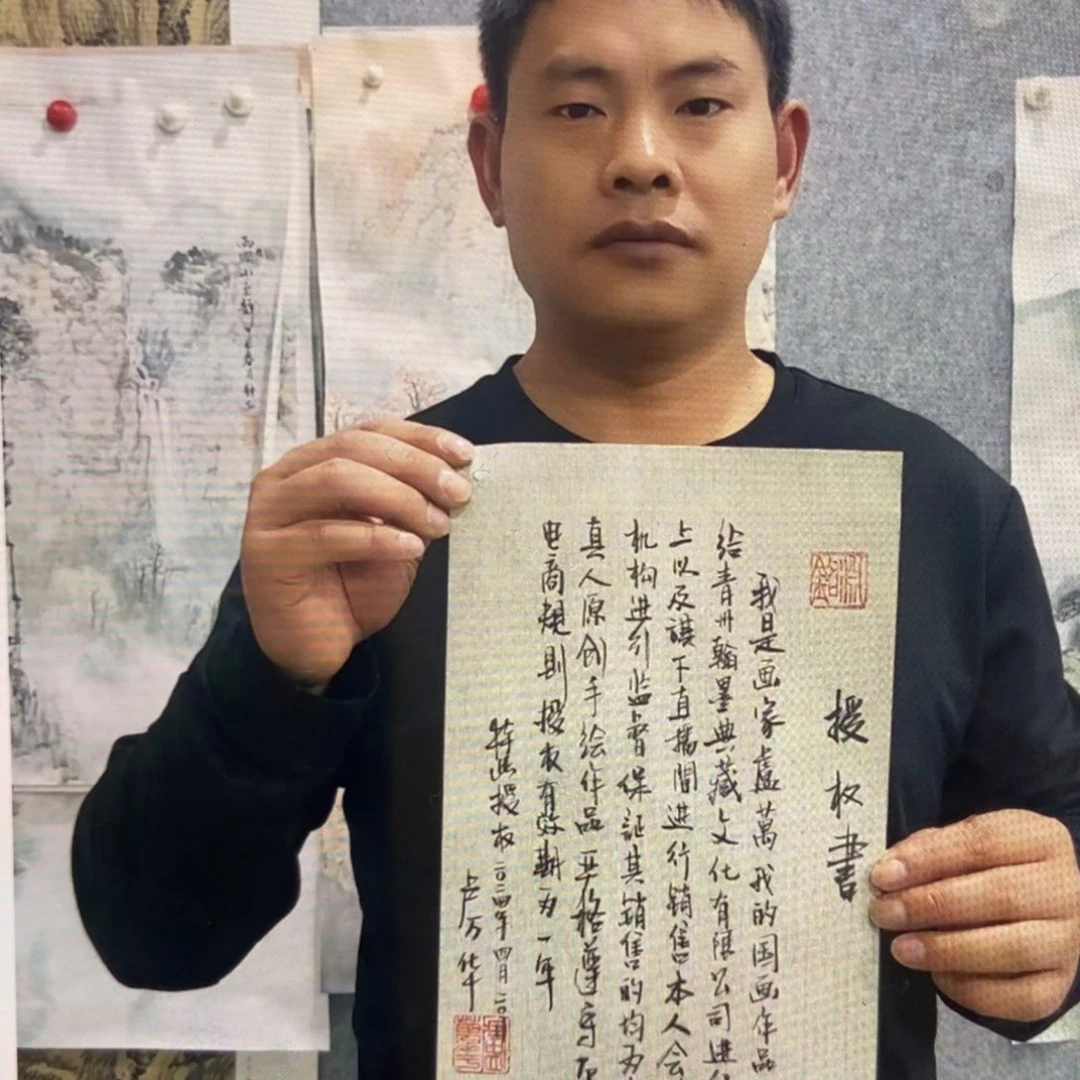 授权書
我是画家盧萬我的国画作品
给青州翰墨典藏文化有限公司进
上以及旗下直播間进行销售本人会
机构进行监督保証其销售的均为
真人原创手绘作品严格遵守
电商规则授权有效期为一年
特此授权二〇二四年四月二〇
卢万华